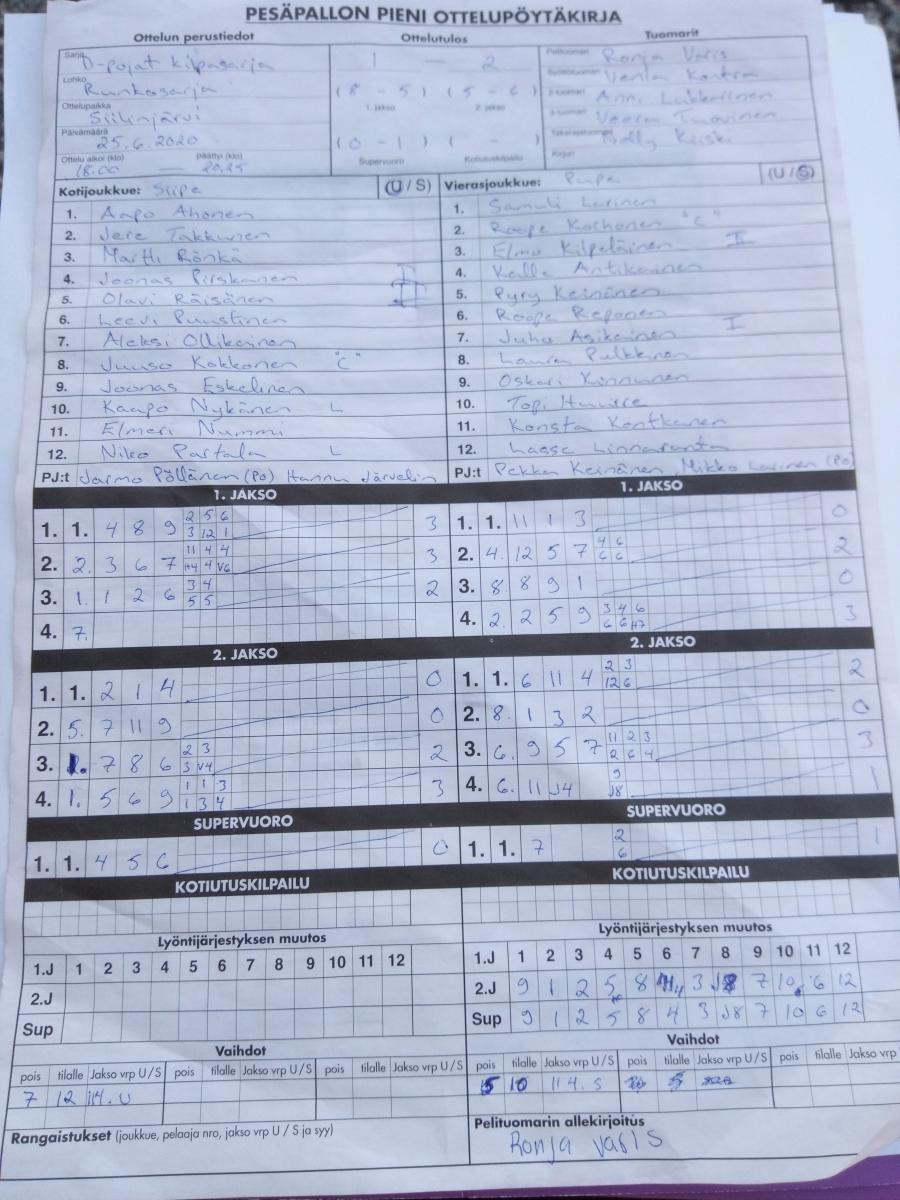 PESÄPALLON PIENI OTTELUPÖYTÄKIRJA
Ottelun perustiedot Ottelutulos Tuomarit
Sarja D-pojat kilpasarja 1 — 2 Pelituomari Ronja Varis
Lohko Runkosarja (8 - 5) (5 - 6) Venla Kontra
Ottelupaikka Siilinjärvi 1. jakso 2. jakso Anni Lukkarinen
Päivämäärä 25.6.2020 (0 - 1) ( - ) Veera Tuovinen
Ottelu alkoi (klo) päättyi (klo) Supervuoro Kotiutuskilpailu Nelly Kiiski
18.00 — 20.25 Kirjuri
Kotijoukkue: Siipe (U / S) Vierasjoukkue: Pupe (U / S)
1. Aapo Ahonen 1. Samuli Larinen
2. Jere Takkunen 2. Roope Korhonen "C"
3. Martti Rönkä 3. Elmo Kilpeläinen II
4. Joonas Pirskanen I 4. Kalle Antikainen
5. Olavi Räisänen II 5. Pyry Keinänen
6. Leevi Puustinen 6. Roope Reponen
7. Aleksi Ollikainen 7. Juho Asikainen I
8. Juuso Kokkonen "C" 8. Laura Pulkkinen
9. Joonas Eskelinen 9. Oskari Kinnunen
10. Kaapo Nykänen L 10. Topi
11. Elmeri Nummi 11. Konsta Kontkanen
12. Niko Partala L 12. Lasse Linnaranta
PJ:t Jarmo Pöllänen (Po) Hannu Järvelin PJ:t Pekka Keinänen, Mikko Larinen (Po)
1. JAKSO 1. JAKSO
1. 1. 4 8 9 2 5 6 3 1. 1. 11 1 3 0
3 12 1
2. 2. 3 6 7 11 4 4 3 2. 4. 12 5 7 4 6 2
H4 4 V6 6 6
3. 1. 1 2 6 3 4 2 3. 8 8 9 1 0
5 5
4. 7. 4. 2. 2 5 9 3 4 6 3
6 6 H7
2. JAKSO 2. JAKSO
1. 1. 2 1 4 0 1. 1. 6 11 4 2 3 2
12 6
2. 5. 7 11 9 0 2. 8. 1 3 2 0
3. 1. 7 8 6 2 3 2 3. 6. 9 5 7 11 2 3 3
3 V4 2 6 4
4. 1. 5 6 9 1 1 3 3 4. 6. 11 J4 9 1
1 3 4 J8
SUPERVUORO SUPERVUORO
1. 1. 4 5 6 0 1. 1. 7 2 1
6
KOTIUTUSKILPAILU KOTIUTUSKILPAILU
Lyöntijärjestyksen muutos Lyöntijärjestyksen muutos
1.J 1 2 3 4 5 6 7 8 9 10 11 12 1.J 1 2 3 4 5 6 7 8 9 10 11 12
2.J 2.J 9 1 2 5 8 4 3 J8 7 10 6 12
Sup Sup 9 1 2 5 8 4 3 J8 7 10 6 12
Vaihdot Vaihdot
pois tilalle Jakso vrp U / S pois tilalle Jakso vrp U / S pois tilalle Jakso vrp U / S pois tilalle Jakso vrp U / S pois tilalle Jakso vrp U / S pois tilalle Jakso vrp
7 12 1/4. U 5 10 1/4. S
Rangaistukset (joukkue, pelaaja nro, jakso vrp U / S ja syy) Pelituomarin allekirjoitus
Ronja Varis